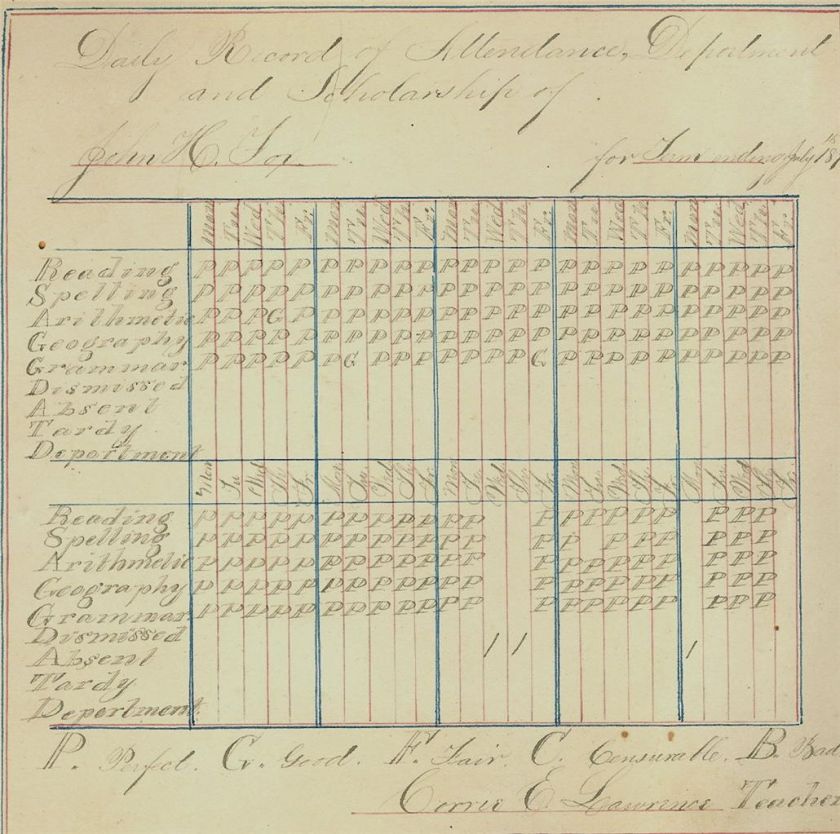 Daily Record of Attendance, Deportment
and Scholarship of
John H. Fox for Term ending July 187
Mon Tu. Wed Th. Fr. Mon Tu. Wed Th. Fr. Mon Tu. Wed Th. Fr. Mon Tu. Wed Th. Fr. Mon Tu. Wed Th. Fr.
Reading P P P P P P P P P P P P P P P P P P P P P P P P P
Spelling P P P P P P P P P P P P P P P P P P P P P P P P P
Arithmetic P P P G P P P P P P P P P P P P P P P P P P P P P
Geography P P P P P P P P P P P P P P P P P P P P P P P P P
Grammar P P P P P P G P P P P P P P G P P P P P P P P P P
Dismissed
Absent
Tardy
Deportment
Mon Tu Wed Th Fr. Mon Tu Wed Th Fr. Mon Tu Wed Th Fr. Mon Tu Wed Th Fr. Mon Tu Wed Th Fr.
Reading P P P P P P P P P P P P P P P P P P P P P
Spelling P P P P P P P P P P P P P P P P P P P P
Arithmetic P P P P P P P P P P P P P P P P P P P P P
Geography P P P P P P P P P P P P P P P P P P P P P
Grammar P P P P P P P P P P P P P P P P P P P P P
Dismissed
Absent / / /
Tardy
Deportment
P. Perfect. G. Good. F. Fair. C. Censurable. B. Bad
Carrie E. Lawrence Teacher